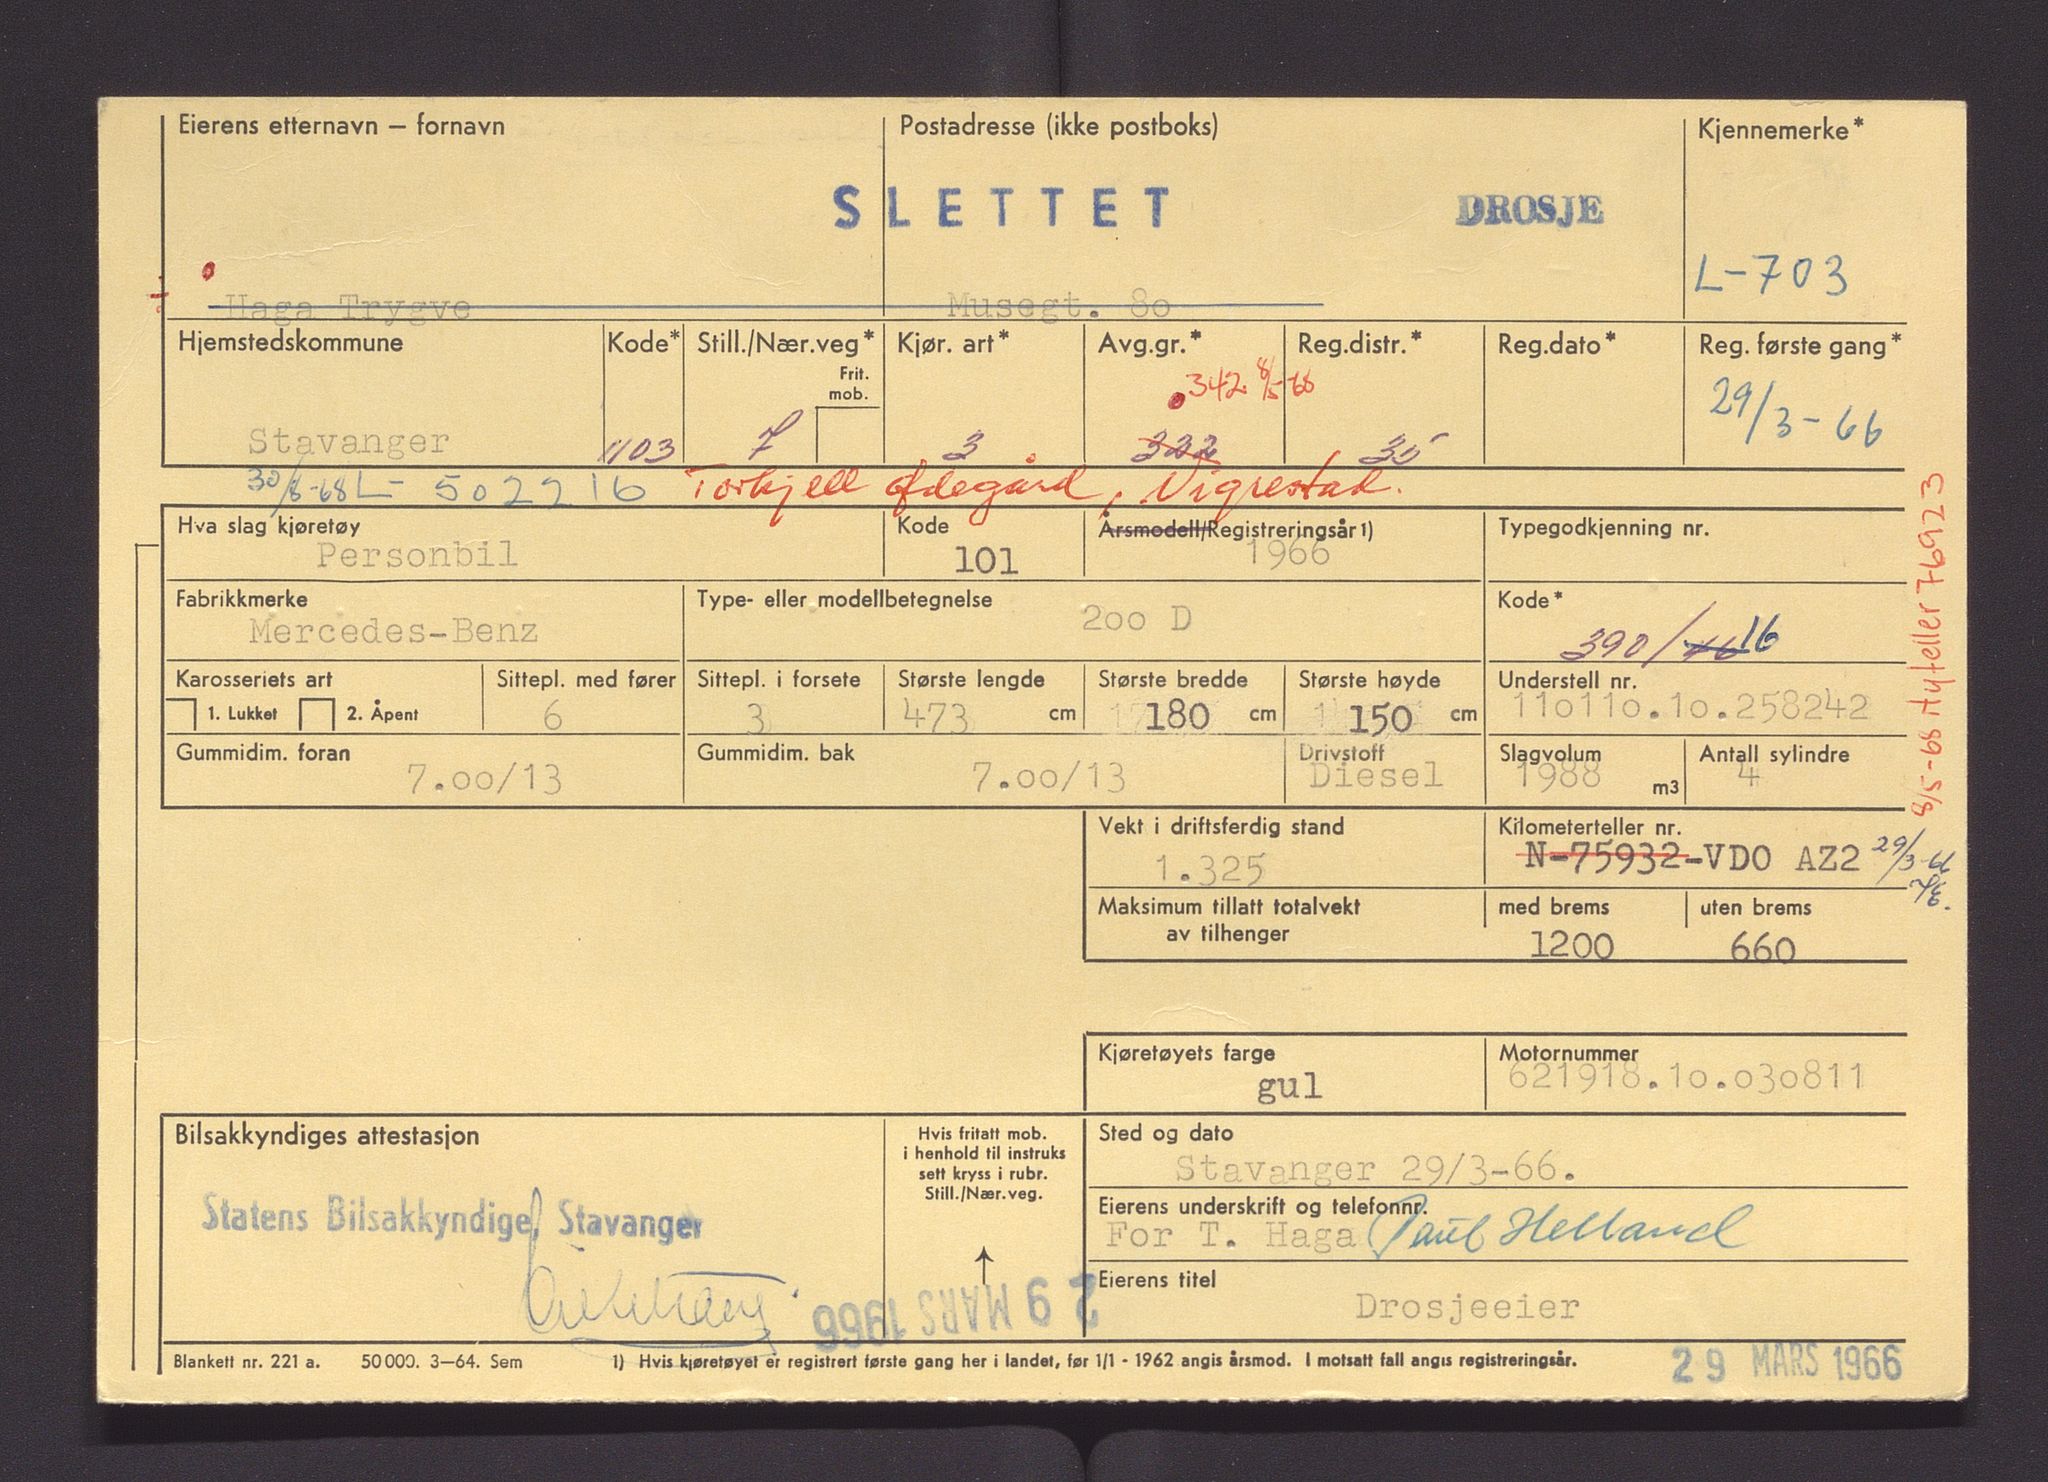 Eierens etternavn – fornavn Postadresse (ikke postboks) Kjennemerke*
SLETTET DROSJE
L-703
Haga Trygve Musegt. 80
Hjemstedskommune Kode* Still./Nær.veg* Kjør. art* Avg.gr.* Reg.distr.* Reg.dato* Reg. første gang*
Frit.
mob.
342 8/5-68
29/3-66
Stavanger 1103 7 3 322 35
30/8-68 L-502216 Torkjell Ødegård, Vigrestad.
Hva slag kjøretøy Kode Årsmodell/Registreringsår 1) Typegodkjenning nr.
Personbil 101 1966
Fabrikkmerke Type- eller modellbetegnelse Kode*
Mercedes-Benz 200 D
390/ 16
Karosseriets art Sittepl. med fører Sittepl. i forsete Største lengde Største bredde Største høyde Understell nr.
1. Lukket 2. Åpent 6 3 473 cm 180 cm 150 cm 110110.10.258242
Gummidim. foran Gummidim. bak Drivstoff Slagvolum Antall sylindre
7.00/13 7.00/13 Diesel 1988 m3 4
8/5-68 Nyteller 76923
Vekt i driftsferdig stand Kilometerteller nr.
1.325 N-75932-VDO AZ2 29/3-66
Maksimum tillatt totalvekt med brems uten brems
av tilhenger 1200 660
Kjøretøyets farge Motornummer
gul 621918.10.030811
Bilsakkyndiges attestasjon Hvis fritatt mob.
i henhold til instruks
sett kryss i rubr.
Still./Nær.veg.
Sted og dato
Stavanger 29/3-66.
Statens Bilsakkyndige, Stavanger
Eierens underskrift og telefonnr.
For T. Haga Paul Helland
Eierens titel
Drosjeeier
29 MARS 1966
Blankett nr. 221 a. 50 000. 3–64. Sem 1) Hvis kjøretøyet er registrert første gang her i landet, før 1/1 - 1962 angis årsmod. I motsatt fall angis registreringsår.
29 MARS 1966